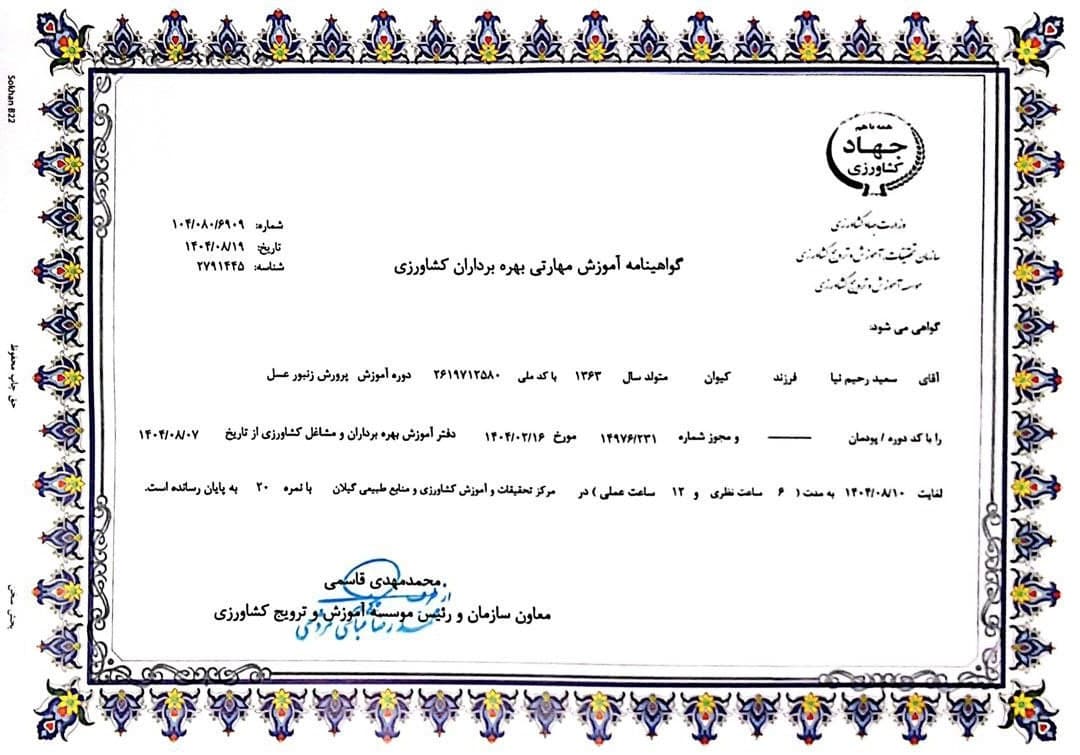 همه با هم
جهاد
کشاورزی
وزارت جهاد کشاورزی
سازمان تحقیقات، آموزش و ترویج کشاورزی
موسسه آموزش و ترویج کشاورزی
شماره: ۱۰۴/۰۸۰/۶۹۰۹
تاریخ: ۱۴۰۴/۰۸/۱۹
شناسه: ۲۷۹۱۴۴۵
گواهینامه آموزش مهارتی بهره برداران کشاورزی
گواهی می شود:
آقای سعید رحیم نیا فرزند کیوان متولد سال ۱۳۶۳ با کد ملی ۲۶۱۹۷۱۲۵۸۰ دوره آموزش پرورش زنبور عسل
را با کد دوره / پودمان ——— و مجوز شماره ۱۴۹۷۶/۲۳۱ مورخ ۱۴۰۴/۰۲/۱۶ دفتر آموزش بهره برداران و مشاغل کشاورزی از تاریخ ۱۴۰۴/۰۸/۰۷
لغایت ۱۴۰۴/۰۸/۱۰ به مدت ( ۶ ساعت نظری و ۱۲ ساعت عملی ) در مرکز تحقیقات و آموزش کشاورزی و منابع طبیعی گیلان با نمره ۲۰ به پایان رسانده است.
محمدمهدی قاسمی
از طرف
معاون سازمان و رئیس موسسه آموزش و ترویج کشاورزی
Sokhan B22
حق چاپ محفوظ
پخش سخن